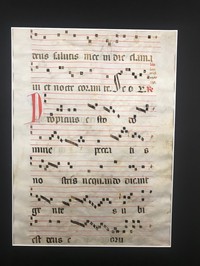 deus salutis mee in die clama
ui et nocte coram te. Glo R.
Propicius esto do
mine pecca tis
no stris nequando dicant
gente s u bi
est deus e oru